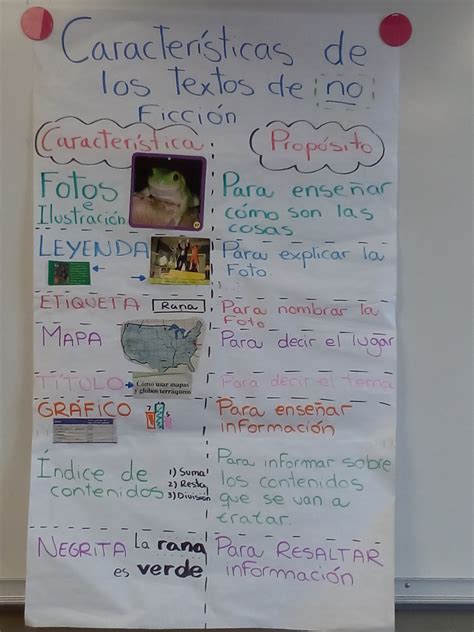 Características de
los Textos de no
Ficción
Característica
Propósito
Fotos
e
Ilustración
Para enseñar
cómo son las
cosas
LEYENDA
Para explicar la
Foto.
ETIQUETA
Rana
Para nombrar la
Foto
MAPA
Para decir el lugar
TÍTULO
Cómo usar mapas
y globos terráqueos
Para decir el tema
GRÁFICO
Para enseñar
información
Índice de
contenidos
1) Suma
2) Resta
3) División
Para informar sobre
los contenidos
que se van a
tratar.
NEGRITA
La rana
es verde
Para RESALTAR
información